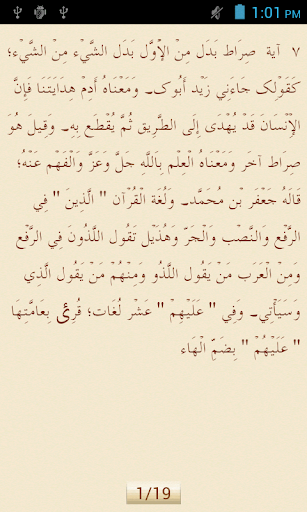 1:01 PM
٧ آية صِرَاط بَدَل مِنْ الْأَوَّل بَدَل الشَّيْء مِنْ الشَّيْء؛
كَقَوْلِك جَاءَنِي زَيْد أَبُوك۔ وَمَعْنَاهُ أَدِمْ هِدَايَتنَا فَإِنَّ
الْإِنْسَان قَد يُهْدَى إِلَى الطَّرِيق ثُمَّ يُقْطَع بِهِ۔ وَقِيلَ هُوَ
صِرَاط آخر وَمَعْنَاهُ الْعِلْم بِاَللَّهِ جَلَّ وَعَزَّ وَالْفَهْم عَنْهُ؛
قَالَهُ جَعْفَر بْن مُحَمَّد۔ وَلُغَة الْقُرْآن " الَّذِينَ " فِي
الرَّفْع وَالنَّصْب وَالْجَرّ؛ وَهُذَيْل تَقُول اللَّذُونَ فِي الرَّفْع
وَمِنْ الْعَرَب مَنْ يَقُول اللَّذُو وَمِنْهُمْ مَنْ يَقُول الَّذِي
وَسَيَأْتِي۔ وَفِي " عَلَيْهِمْ " عَشْر لُغَات؛ قُرِئَ بِعَامَّتِهَا
" عَلَيْهُمْ " بِضَمِّ الْهَاء
1/19